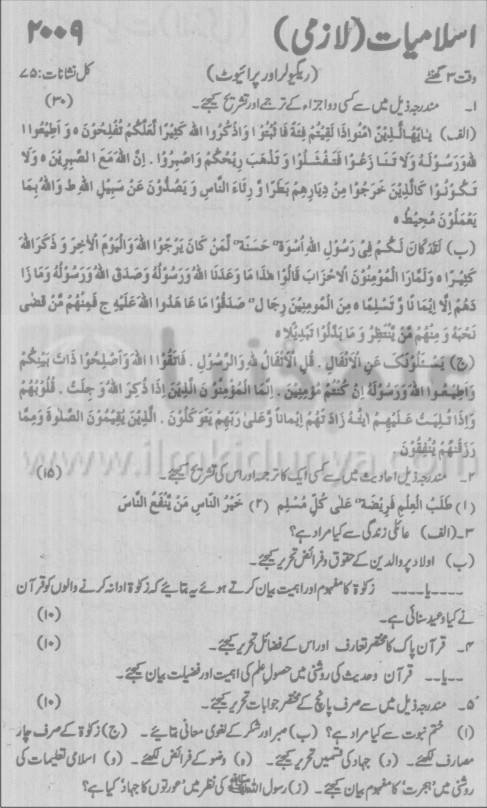 اسلامیات (لازمی) ۲۰۰۹
وقت ۳ گھنٹے (ریگولر اور پرائیوٹ) کل نشانات: ۷۵
۱۔ مندرجہ ذیل میں سے کسی دو اجزاء کے ترجمے اور تشریح کیجئے۔ (۳۰)
(الف) یٰایھا الذین امنوا اذا لقیتم فئۃ فاثبتوا واذکروا اللہ کثیرًا لعلکم تفلحون ہ و اطیعوا ا
للہ ورسولہ ولا تنازعوا فتفشلوا و تذھب ریحکم واصبروا . ان اللہ مع الصبرین ہ ولا
تکونوا کالذین خرجوا من دیارھم بطرًا و رئاء الناس و یصدون عن سبیل اللہ ط واللہ بما
یعملون محیط ہ
(ب) لقد کان لکم فی رسول اللہ اسوۃ حسنۃ لمن کان یرجوا اللہ والیوم الاخر و ذکر اللہ
کثیرًا ہ ولما را المومنون الاحزاب قالوا ھذا ما وعدنا اللہ ورسولہ وصدق اللہ ورسولہ وما زا
دھم الا ایمانا و تسلیما ہ من المومنین رجال صدقوا ما عا ھدوا اللہ علیہ ج فمنھم من قضی
نحبہ و منھم من ینتظر وما بدلوا تبدیلا ہ
(ج) یسئلونک عن الانفال . قل الانفال للہ والرسول . فاتقوا اللہ واصلحوا ذات بینکم
واطیعوا اللہ ورسولہ ان کنتم مؤمنین . انما المؤمنون الذین اذا ذکر اللہ وجلت . قلوبھم
واذا تلیت علیھم ایتہ زادتھم ایمانا وعلی ربھم یتوکلون . الذین یقیمون الصلوۃ ومما
رزقنھم ینفقون
www.ilmkidunya.com
۲۔ مندرجہ ذیل احادیث میں سے کسی ایک کا ترجمہ اور اس کی تشریح کیجئے۔ (۱۵)
(۱) طلب العلم فریضۃ علی کل مسلم (۲) خیر الناس من ینفع الناس
۳۔ (الف) عائلی زندگی سے کیا مراد ہے؟
(ب) اولاد پر والدین کے حقوق و فرائض تحریر کیجئے۔
----یا---- زکوٰۃ کا مفہوم اور اہمیت بیان کرتے ہوئے یہ بتائیے کہ زکوٰۃ ادا نہ کرنے والوں کو قرآن
نے کیا وعید سنائی ہے۔ (۱۰)
۴۔ قرآن پاک کا مختصر تعارف اور اس کے فضائل تحریر کیجئے۔ (۱۰)
--یا-- قرآن و حدیث کی روشنی میں حصول علم کی اہمیت اور فضیلت بیان کیجئے۔
۵۔ مندرجہ ذیل میں سے صرف پانچ کے مختصر جوابات تحریر کیجئے۔ (۱۰)
(۱) ختم نبوت سے کیا مراد ہے؟ (ب) صبر اور شکر کے لغوی معانی بتائیے۔ (ج) زکوٰۃ کے صرف چار
مصارف لکھئے۔ (د) جہاد کی قسمیں تحریر کیجئے۔ (ہ) وضو کے فرائض لکھئے۔ (و) اسلامی تعلیمات کی
روشنی میں 'ہجرت' کا مفہوم بیان کیجئے۔ (ز) رسول اللہ ﷺ کی نظر میں 'عورتوں کا جہاد' کیا ہے؟